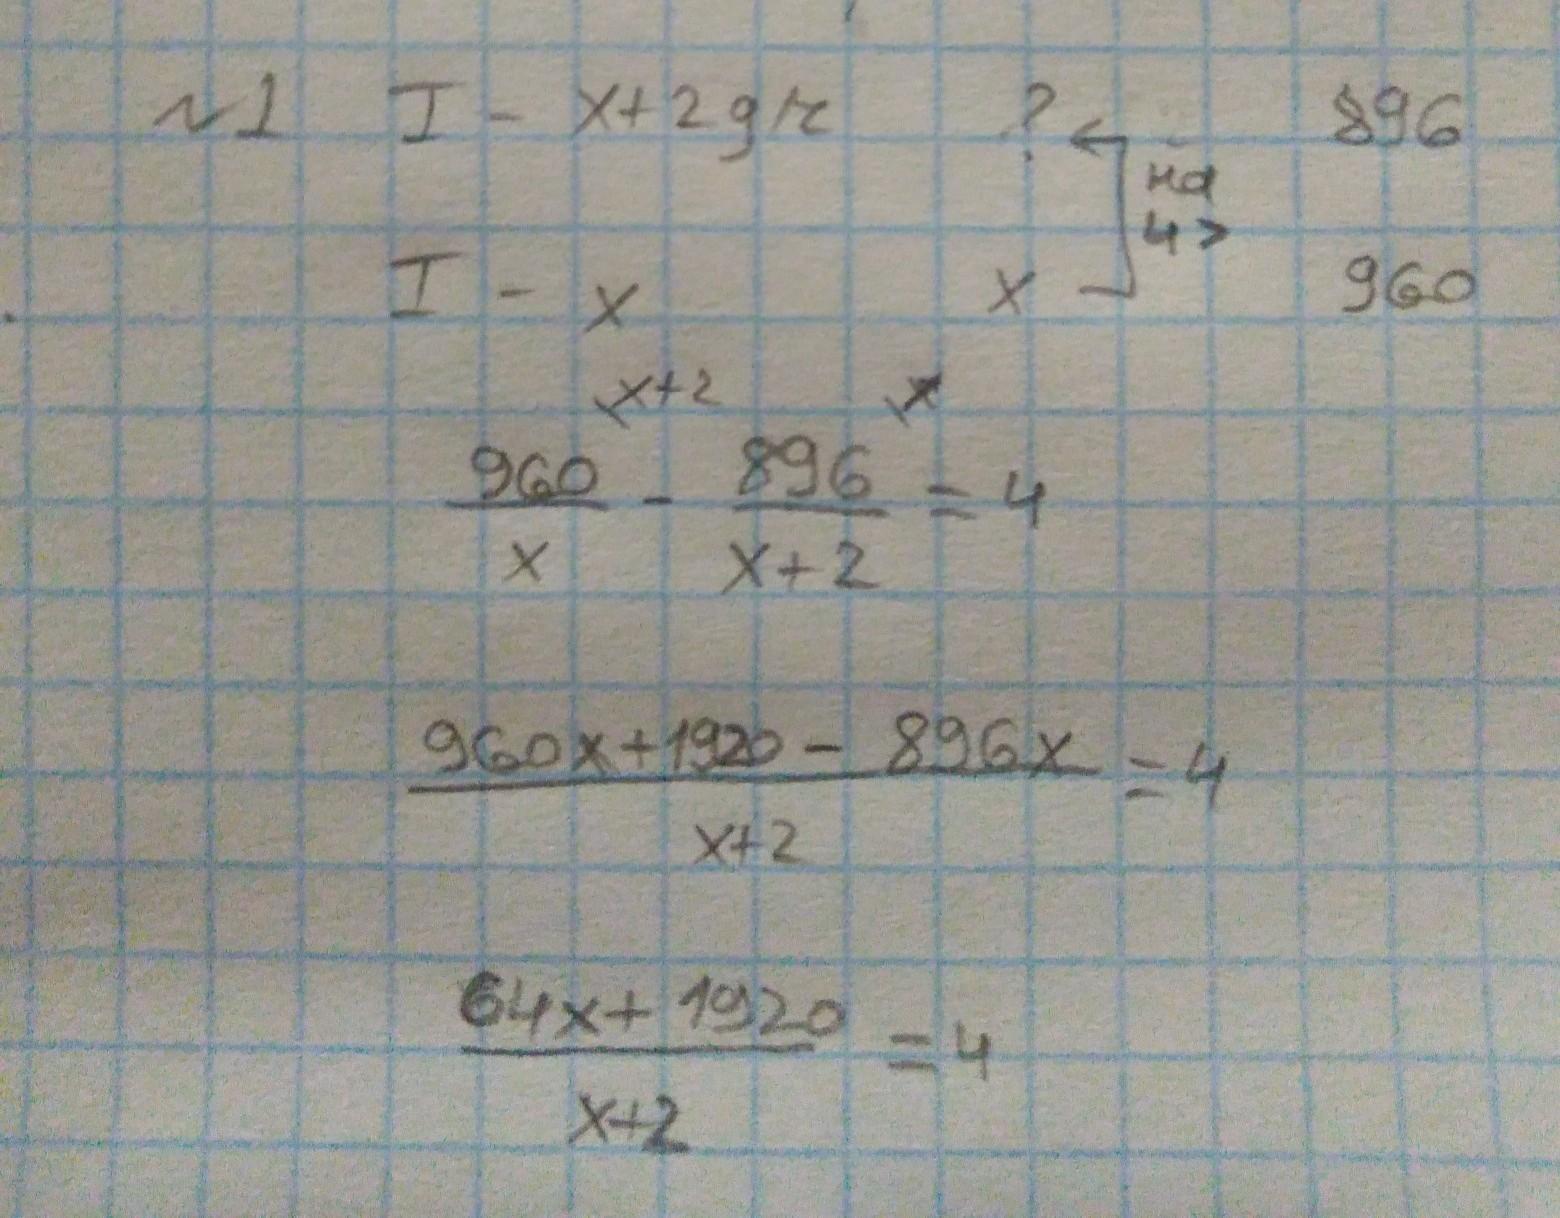 №1 I - x+2 д/ч ? 896
на
4 >
I - x x 960
x+2 x
960/x - 896/x+2 = 4
960x+1920 - 896x / x+2 = 4
64x+1920 / x+2 = 4